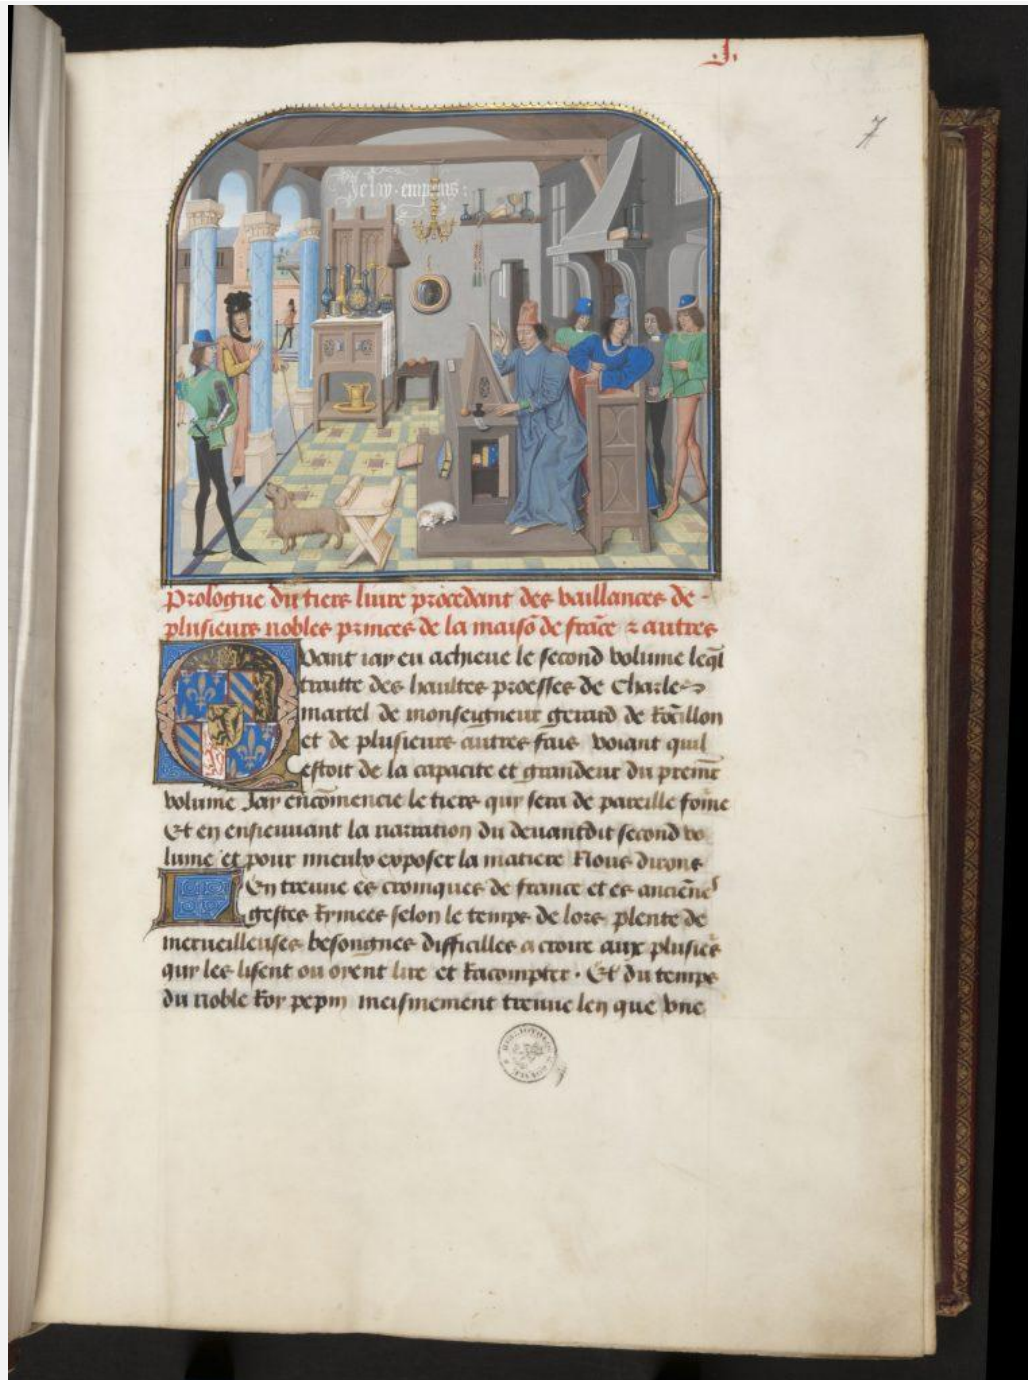 .J.
7
Je lay empris:
Prologue du tiers livre procedant des vaillances de
plusieurs nobles princes de la maisō de frāce ⁊ autres
Quant iay eu achieue le second volume leq̄l
traitte des haultes proesses de Charles
martel de monseigneur gerard de Rossillon
et de plusieurs autres fais voiant quil
estoit de la capacite et grandeur du premr̄
volume Jay encōmencie le tiers quy sera de pareille fōme
Et en ensieuuant la narration du deuantdit second vo
lume et pour mieulx exposer la matiere Nous dirons
En treuue es croniques de france et es anciēnes
gestes Rymees selon le temps de lors plente de
merueilleuses besongnes difficilles a croire aux plusieꝰs
quy les lisent ou oyent lire et Racompter. Et du temps
du noble Roy pepin meismement treuue len que vne